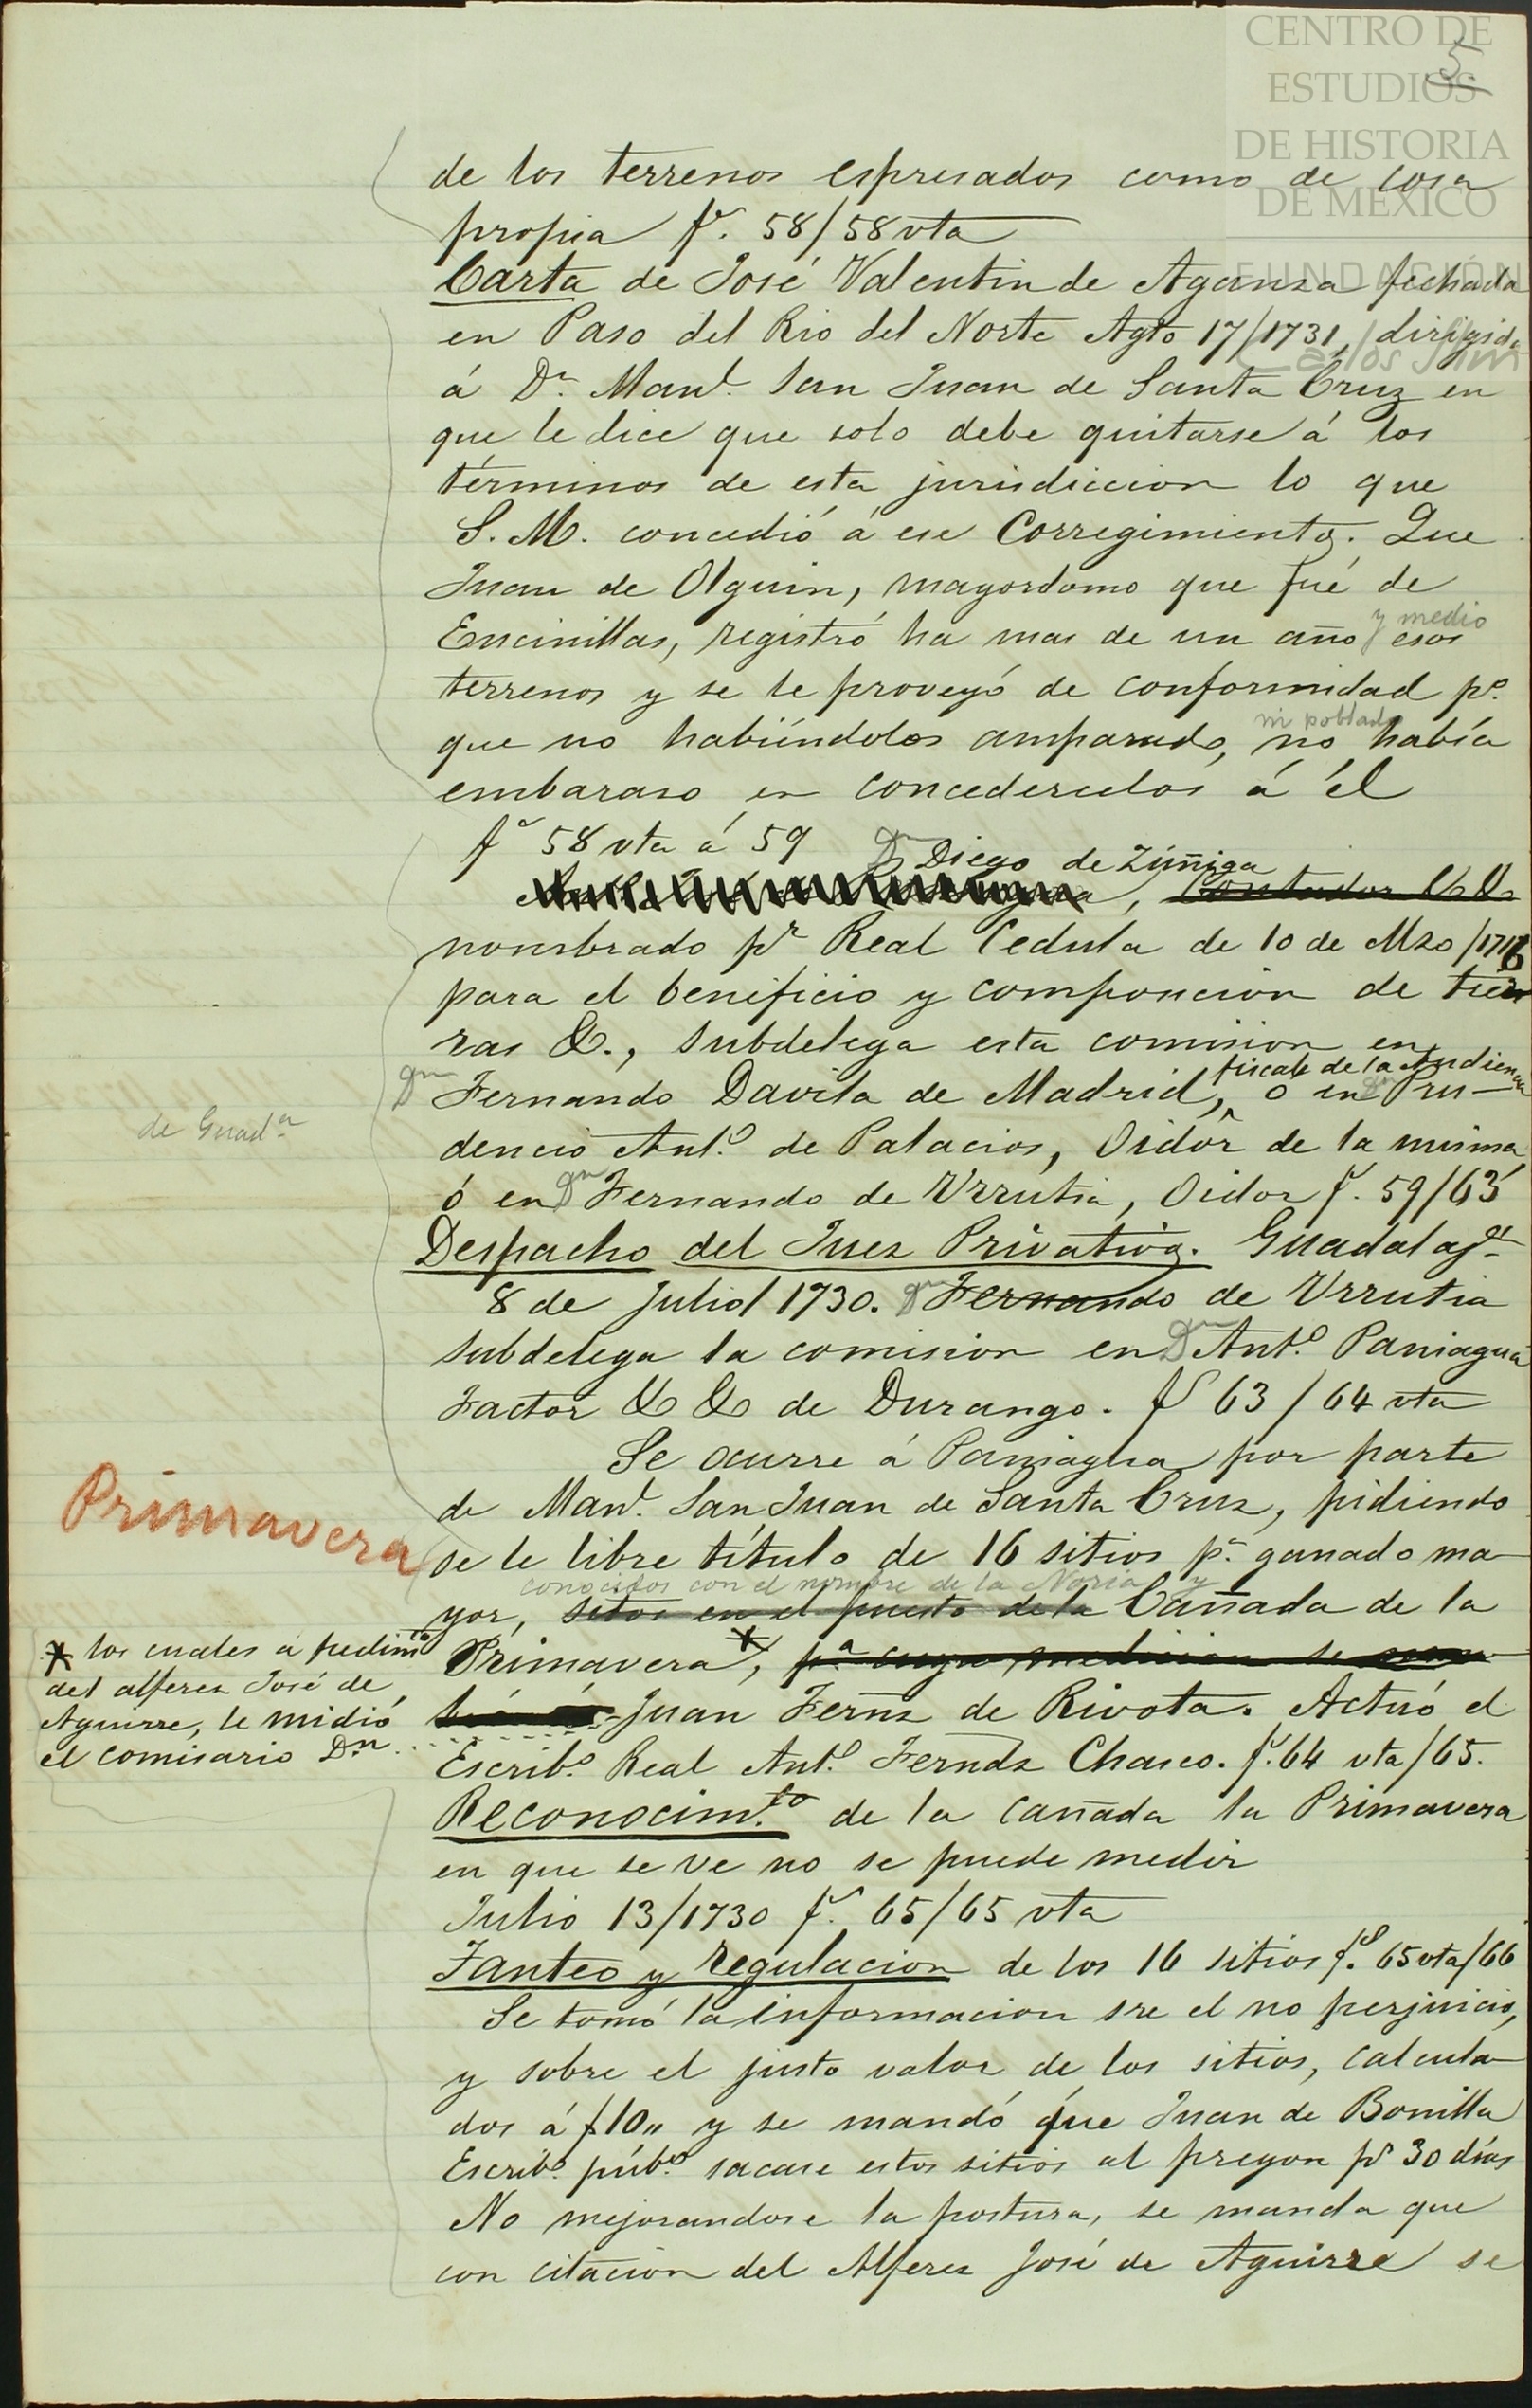 CENTRO DE
ESTUDIOS
DE HISTORIA
DE MEXICO
FUNDACIÓN
Carlos Slim
5
de los terrenos espresados como de cosa
propia fs. 58/58 vta
Carta de José Valentin de Aganza fechada
en Paso del Rio del Norte Agto 17/1731, dirigida
á Dn. Manl. San Juan de Santa Cruz en
que le dice que solo debe quitarse á los
términos de esta jurisdiccion lo que
S. M. concedió á ese Corregimiento. Que
Juan de Olguin, mayordomo que fué de
Encinillas, registró ha mas de un año y medio esos
terrenos y se le proveyó de conformidad po.
que no habiéndolos amparado, ni poblado no había
embaraso en concederselos á él
fs 58 vta á 59
Dn Diego de Zúñiga
, Contador &&
nombrado pr Real Cedula de 10 de Mzo/1716
para el beneficio y composicion de tier
ras &., subdelega esta comision en
Dn Fernando Davila de Madrid, fiscal de la Audiencia
de Guada
ó en Dn Pru-
dencio Anto. de Palacios, Oidor de la misma
ó en Dn Fernando de Urrutia, Oidor f. 59/63
Despacho del Juez Privativo. Guadalaja
8 de Julio/1730. Dn Fernando de Urrutia
subdelega la comision en Dn Anto. Paniagua
Factor && de Durango. fs 63/64 vta
Se ocurre á Paniagua por parte
de Manl. San Juan de Santa Cruz, pidiendo
Primavera
se le libre título de 16 sitios pa. ganado ma-
conocidos con el nombre de la Noria y
yor, sitos en el puesto de la Cañada de la
Primavera*, pa cuya medicion se
* los cuales á pedimto
del alferez José de
Aguirre, le midió
el comisario Dn.
Juan Fernz de Rivota. Actuó el
Escribo. Real Anto. Ferndz Chasco. f. 64 vta/65.
Reconocimto. de la cañada la Primavera
en que se ve no se puede medir
Julio 13/1730 fs. 65/65 vta
Tanteo y regulacion de los 16 sitios fs. 65 vta/66
Se tomó la informacion sre el no perjuicio,
y sobre el justo valor de los sitios, calcula-
dos á $10,, y se mandó que Juan de Bonilla
Escribo. púbo. sacase estos sitios al pregon pr 30 días
No mejorandose la postura, se manda que
con citacion del Alferez José de Aguirre se